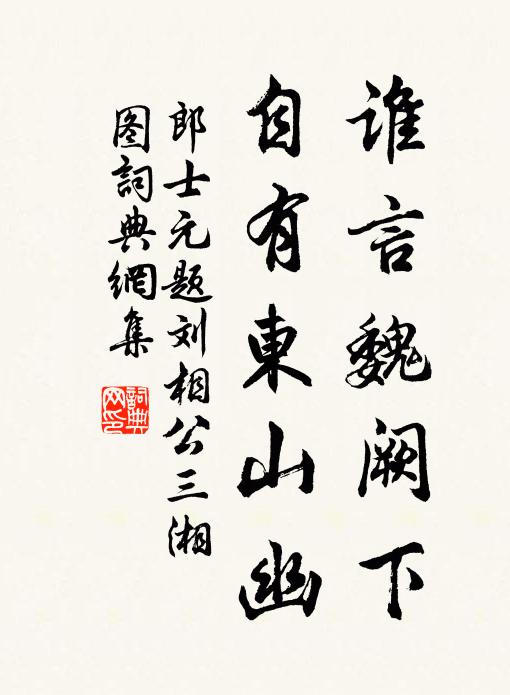 谁言魏阙下
自有東山幽
郎士元题刘相公三湘
图詞典網集
詞典
网印